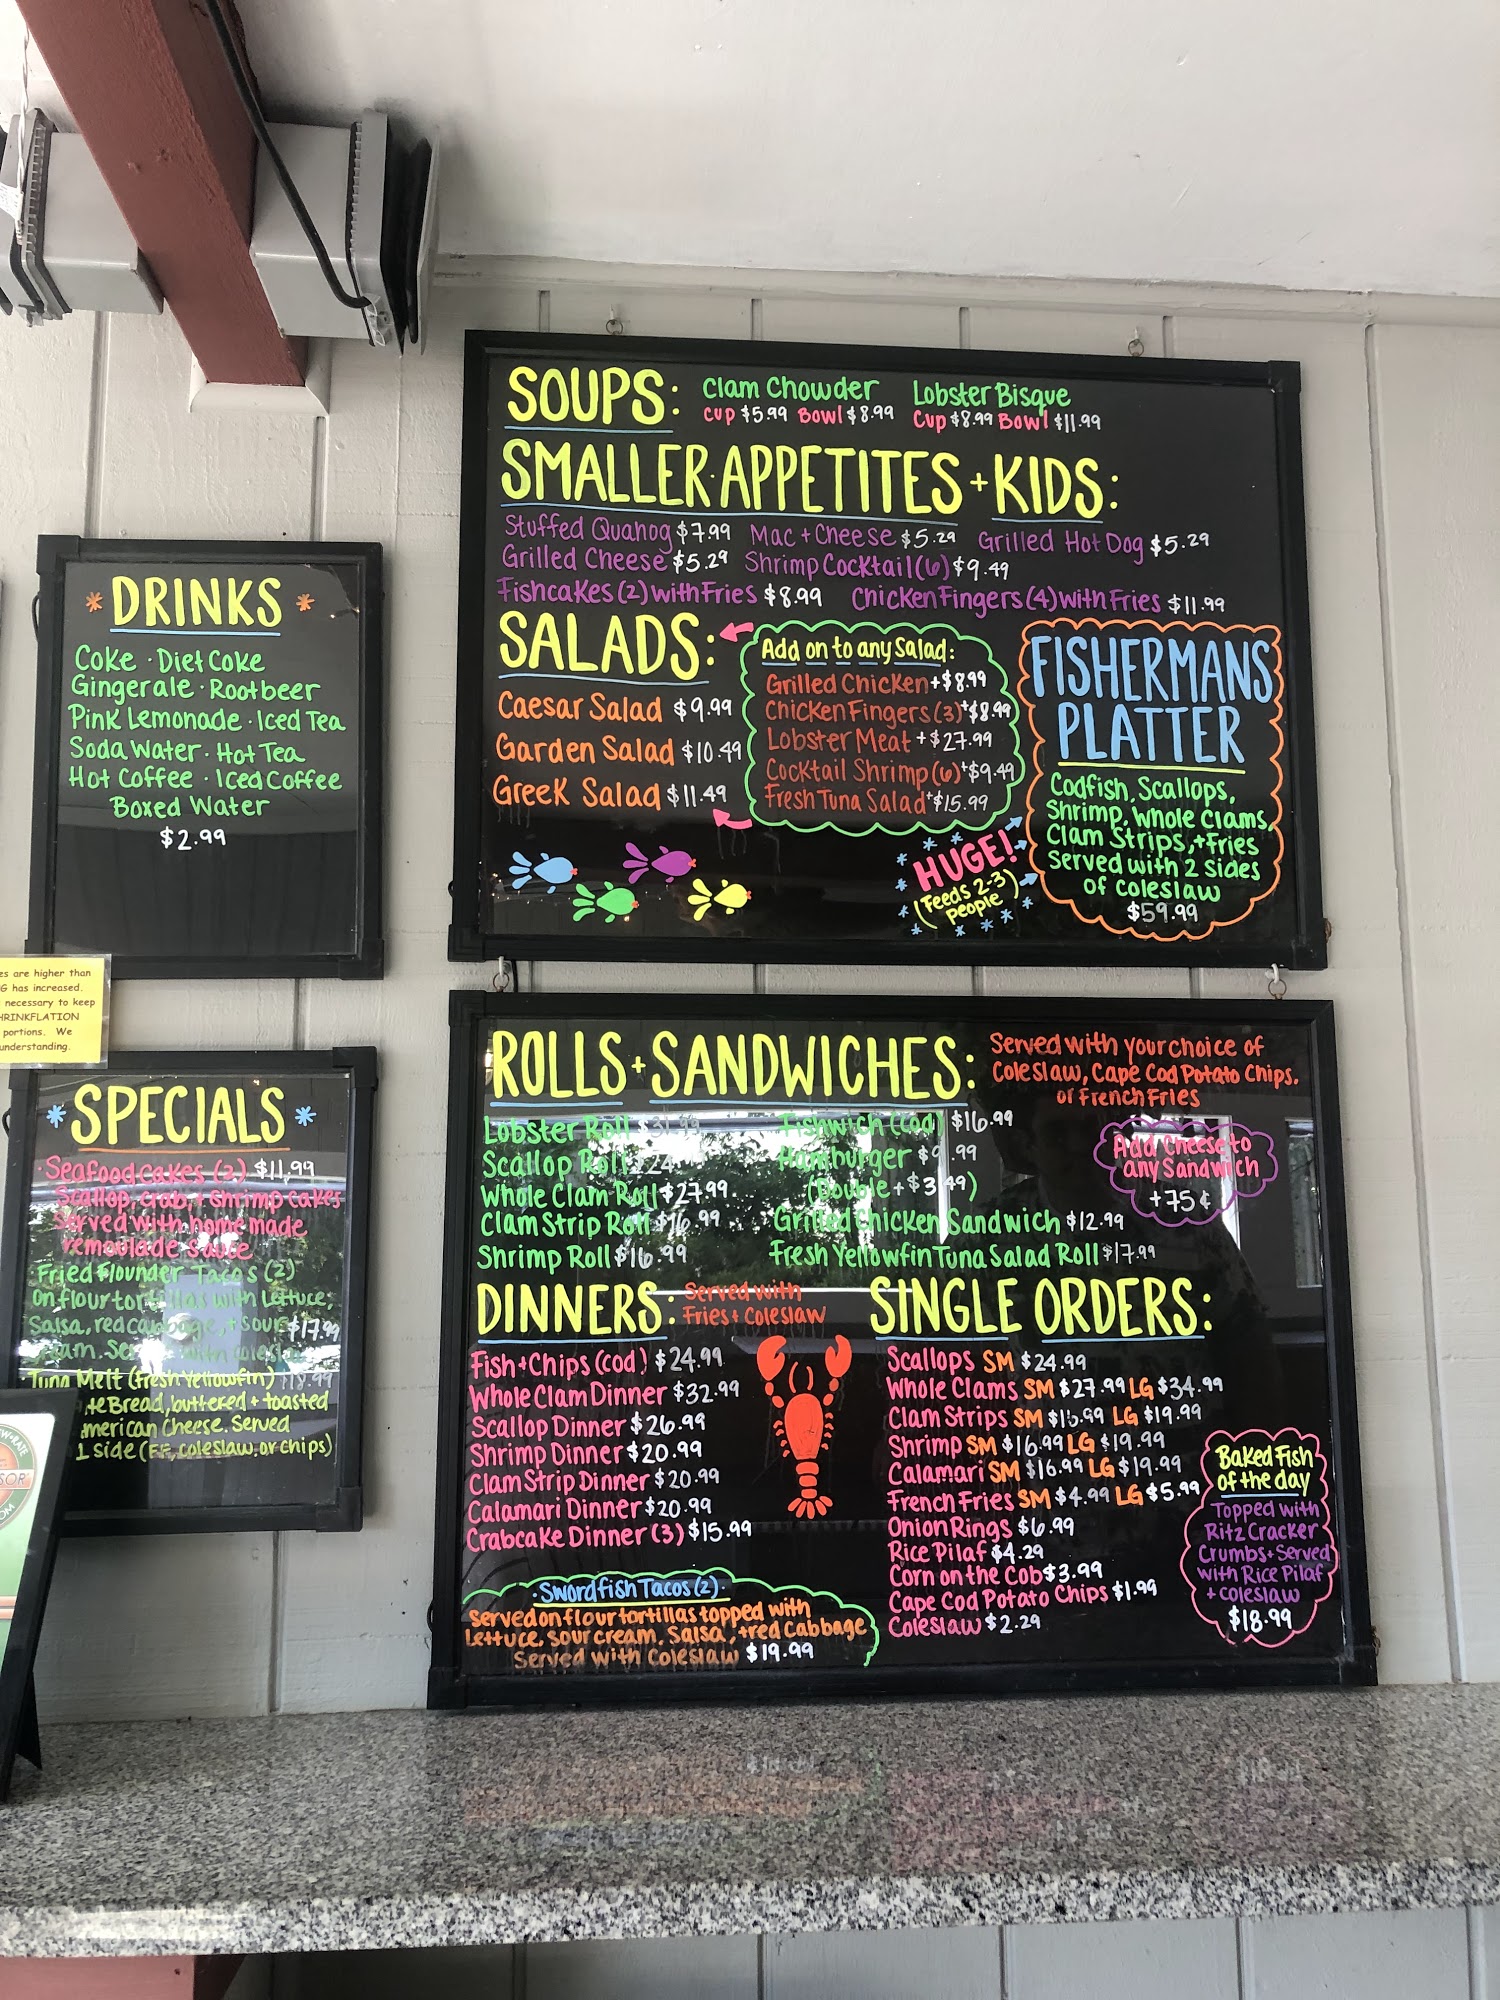 SOUPS: Clam Chowder Lobster Bisque
Cup $5.99 Bowl $8.99 Cup $8.99 Bowl $11.99
SMALLER APPETITES + KIDS:
Stuffed Quahog $7.99 Mac + Cheese $5.29 Grilled Hot Dog $5.29
Grilled Cheese $5.29 Shrimp Cocktail (6) $9.49
Fishcakes (2) with Fries $8.99 Chicken Fingers (4) with Fries $11.99
SALADS:
Caesar Salad $9.99
Garden Salad $10.49
Greek Salad $11.49
Add on to any Salad:
Grilled Chicken +$8.99
Chicken Fingers (3) +$8.99
Lobster Meat +$27.99
Cocktail Shrimp (6) +$9.49
Fresh Tuna Salad +$15.99
FISHERMANS
PLATTER
Codfish, Scallops,
Shrimp, Whole Clams,
Clam Strips, + Fries
Served with 2 sides
of coleslaw
$59.99
HUGE!
(Feeds 2-3
people)
* DRINKS *
Coke · Diet Coke
Gingerale · Rootbeer
Pink Lemonade · Iced Tea
Soda Water · Hot Tea
Hot Coffee · Iced Coffee
Boxed Water
$2.99
es are higher than
G has increased.
necessary to keep
HRINKFLATION
portions. We
understanding.
* SPECIALS *
· Seafood Cakes (2) $11.99
Scallop, crab, + Shrimp Cakes
Served with homemade
remoulade sauce
Fried Flounder Tacos (2)
on flour tortillas with Lettuce,
Salsa, red cabbage, + sour $17.99
with coleslaw
· Tuna Melt (fresh Yellowfin)
te Bread, buttered + toasted
merican Cheese. Served
1 side (FF, coleslaw, or chips)
SOR
ROLLS + SANDWICHES:
Served with your choice of
Coleslaw, Cape Cod Potato Chips.
or French Fries
Lobster Roll
Scallop Roll
Whole Clam Roll $27.99
Clam Strip Roll $16.99
Shrimp Roll $16.99
Fishwich (cod) $16.99
Hamburger $9.99
(Double + $3.49)
Grilled Chicken Sandwich $12.99
Fresh Yellowfin Tuna Salad Roll $17.99
Add Cheese to
any Sandwich
+75¢
DINNERS: Served with
Fries + Coleslaw
Fish + Chips (cod) $24.99
Whole Clam Dinner $32.99
Scallop Dinner $26.99
Shrimp Dinner $20.99
Clam Strip Dinner $20.99
Calamari Dinner $20.99
Crabcake Dinner (3) $15.99
· Swordfish Tacos (2) ·
Served on flour tortillas topped with
Lettuce, sour cream, Salsa, + red Cabbage
Served with Coleslaw $19.99
SINGLE ORDERS:
Scallops SM $24.99
Whole Clams SM $27.99 LG $34.99
Clam Strips SM $16.99 LG $19.99
Shrimp SM $16.99 LG $19.99
Calamari SM $16.99 LG $19.99
French Fries SM $4.99 LG $5.99
Onion Rings $6.99
Rice Pilaf $4.29
Corn on the Cob $3.99
Cape Cod Potato Chips $1.99
Coleslaw $2.29
Baked Fish
of the day
Topped with
Ritz Cracker
Crumbs + Served
with Rice Pilaf
+ coleslaw
$18.99